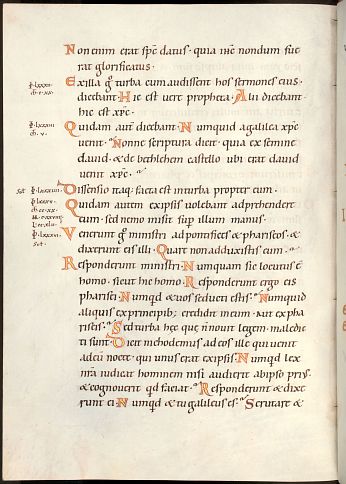 Non enim erat sp̄c datus· quia ihc̄ nondum fue
rat glorificatus·
Ex illa g̊ turba cum audissent hos sermones eius·
dicebant· Hic est vere propheta· Alii dicebant·
hic est xp̄c·
Quidam aut̄ dicebant· Numquid a galilea xp̄c
venit· Nonne scriptura dicit· quia ex semine
david· & de bethleem castello ubi erat david
venit xp̄c·
Dissensio itaq; facta est in turba propter eum·
Quidam autem ex ipsis volebant adprehendere
eum· sed nemo misit sup̄ illum manus·
Venerunt g̊ ministri ad pontifices & phariseos· &
dixerunt eis illi· Quare non adduxistis eum·
Responderunt ministri· Numquam sic locutus ē
homo· sicut hic homo· Responderunt ergo eis
pharisei· Numqd & vos seducti estis· Numquid
aliquis ex principib; credidit in eum· Aut ex pha
riseis· Sed turba hęc quę n̄ novit legem· maledic
ti sunt· Dicit nichodemus ad eos ille qui venit
ad eū nocte· qui unus erat ex ipsis· Numqd lex
nr̄a iudicat hominem nisi audierit ab ipso prius·
& cognoverit qd faciat· Responderunt & dixe
runt ei· Numqd & tu galileus es· Scrutare &